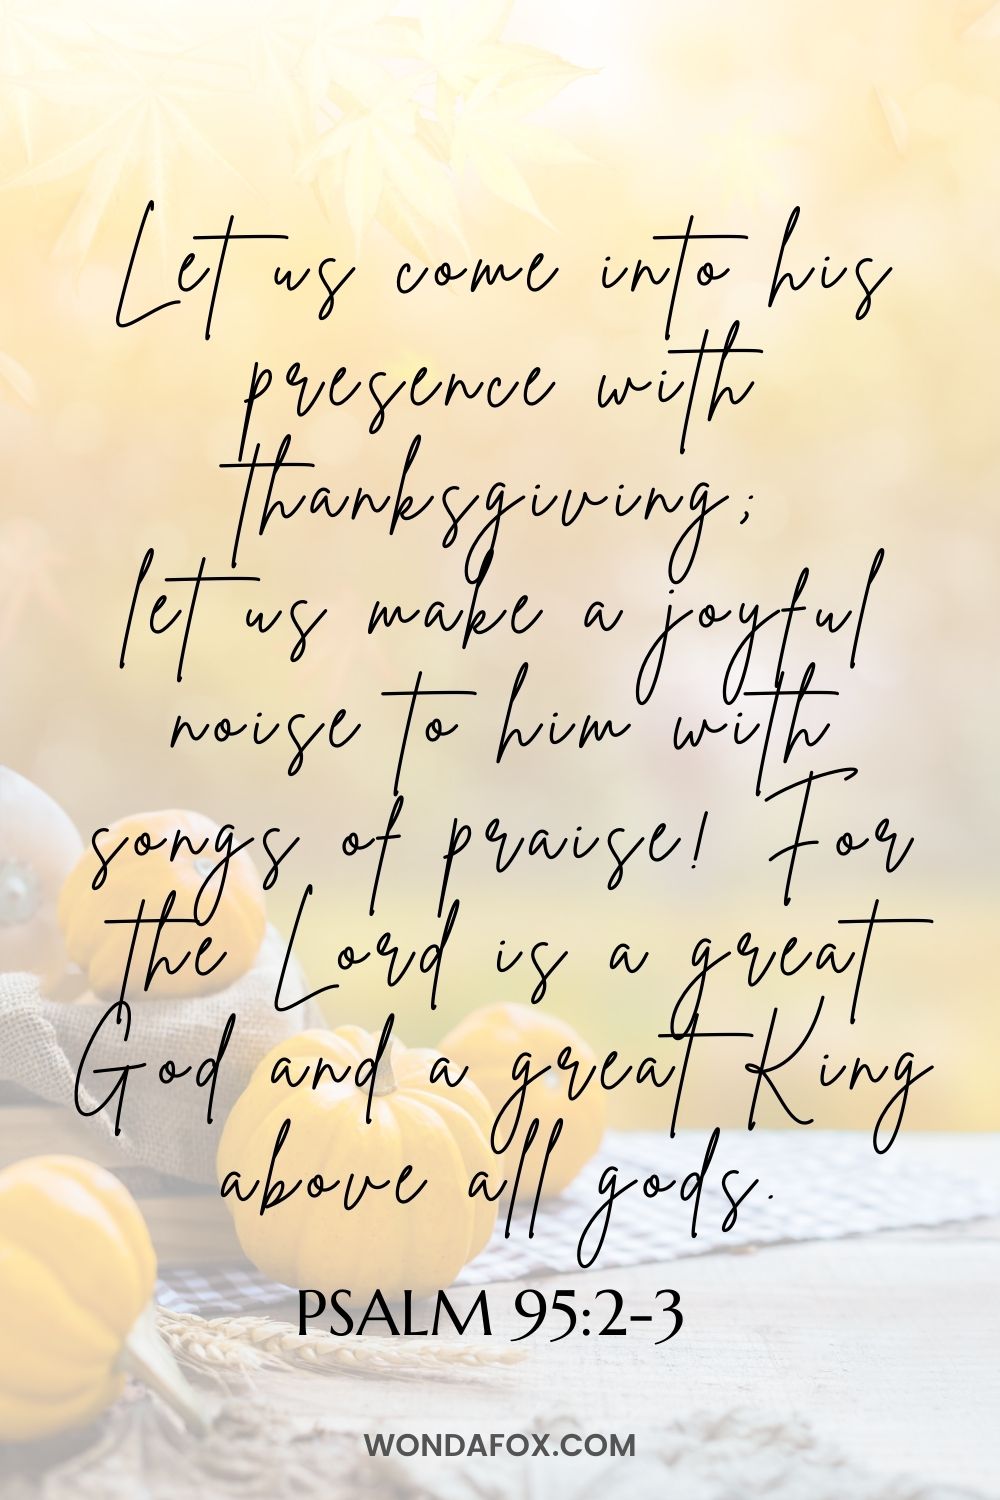 Let us come into his
presence with
thanksgiving;
let us make a joyful
noise to him with
songs of praise! For
the Lord is a great
God and a great King
above all gods.
PSALM 95:2-3
WONDAFOX.COM